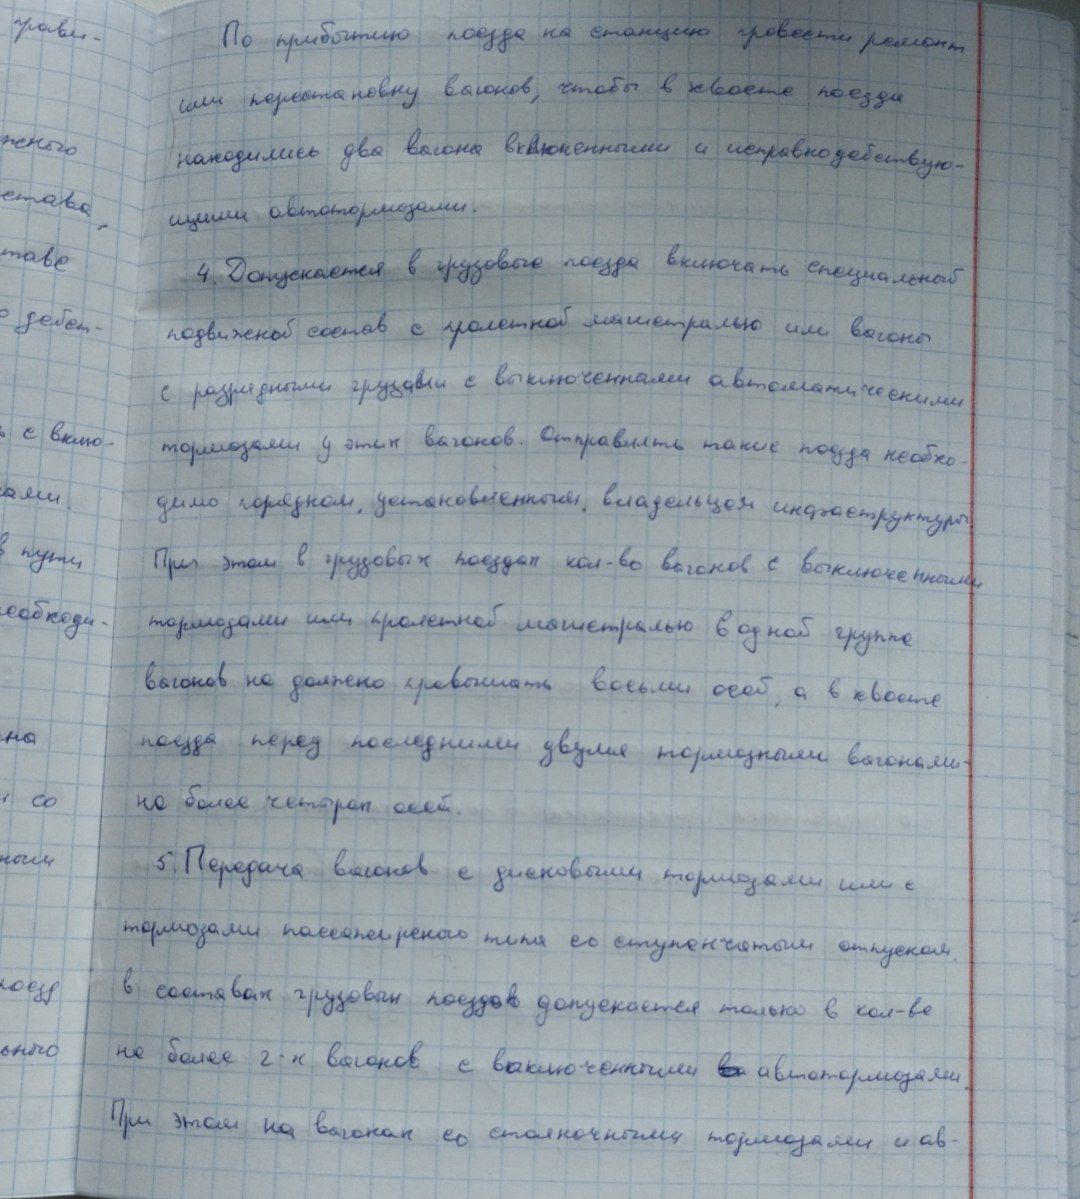 грави-
жного
става,
таве
о дейст-
ь с вклю-
ами.
в пути
необходи-
на
со
ным
поезд
ьного
По прибытию поезда на станцию провести ремонт
или перестановку вагонов, чтобы в хвосте поезда
находились два вагона включенными и исправнодействую-
щими автотормозами.
4. Допускается в грузовые поезда включать специальный
подвижной состав с пролетной магистралью или вагоны
с разрядными грузами с выключенными автоматическими
тормозами у этих вагонов. Отправлять такие поезда необхо-
димо порядком, установленным, владельцом инфраструктуры
При этом в грузовых поездах кол-во вагонов с выключенными
тормозами или пролетной магистралью в одной группе
вагонов не должно превышать восьми осей, а в хвосте
поезда перед последними двумя тормозными вагонами-
не более четырех осей.
5. Передача вагонов с дисковыми тормозами или с
тормозами пассажирского типа со ступенчатым отпуском.
в составах грузовых поездов допускается только в кол-ве
не более 2-х вагонов с выключенными автотормозами.
При этом на вагонах со стояночными тормозами и ав-